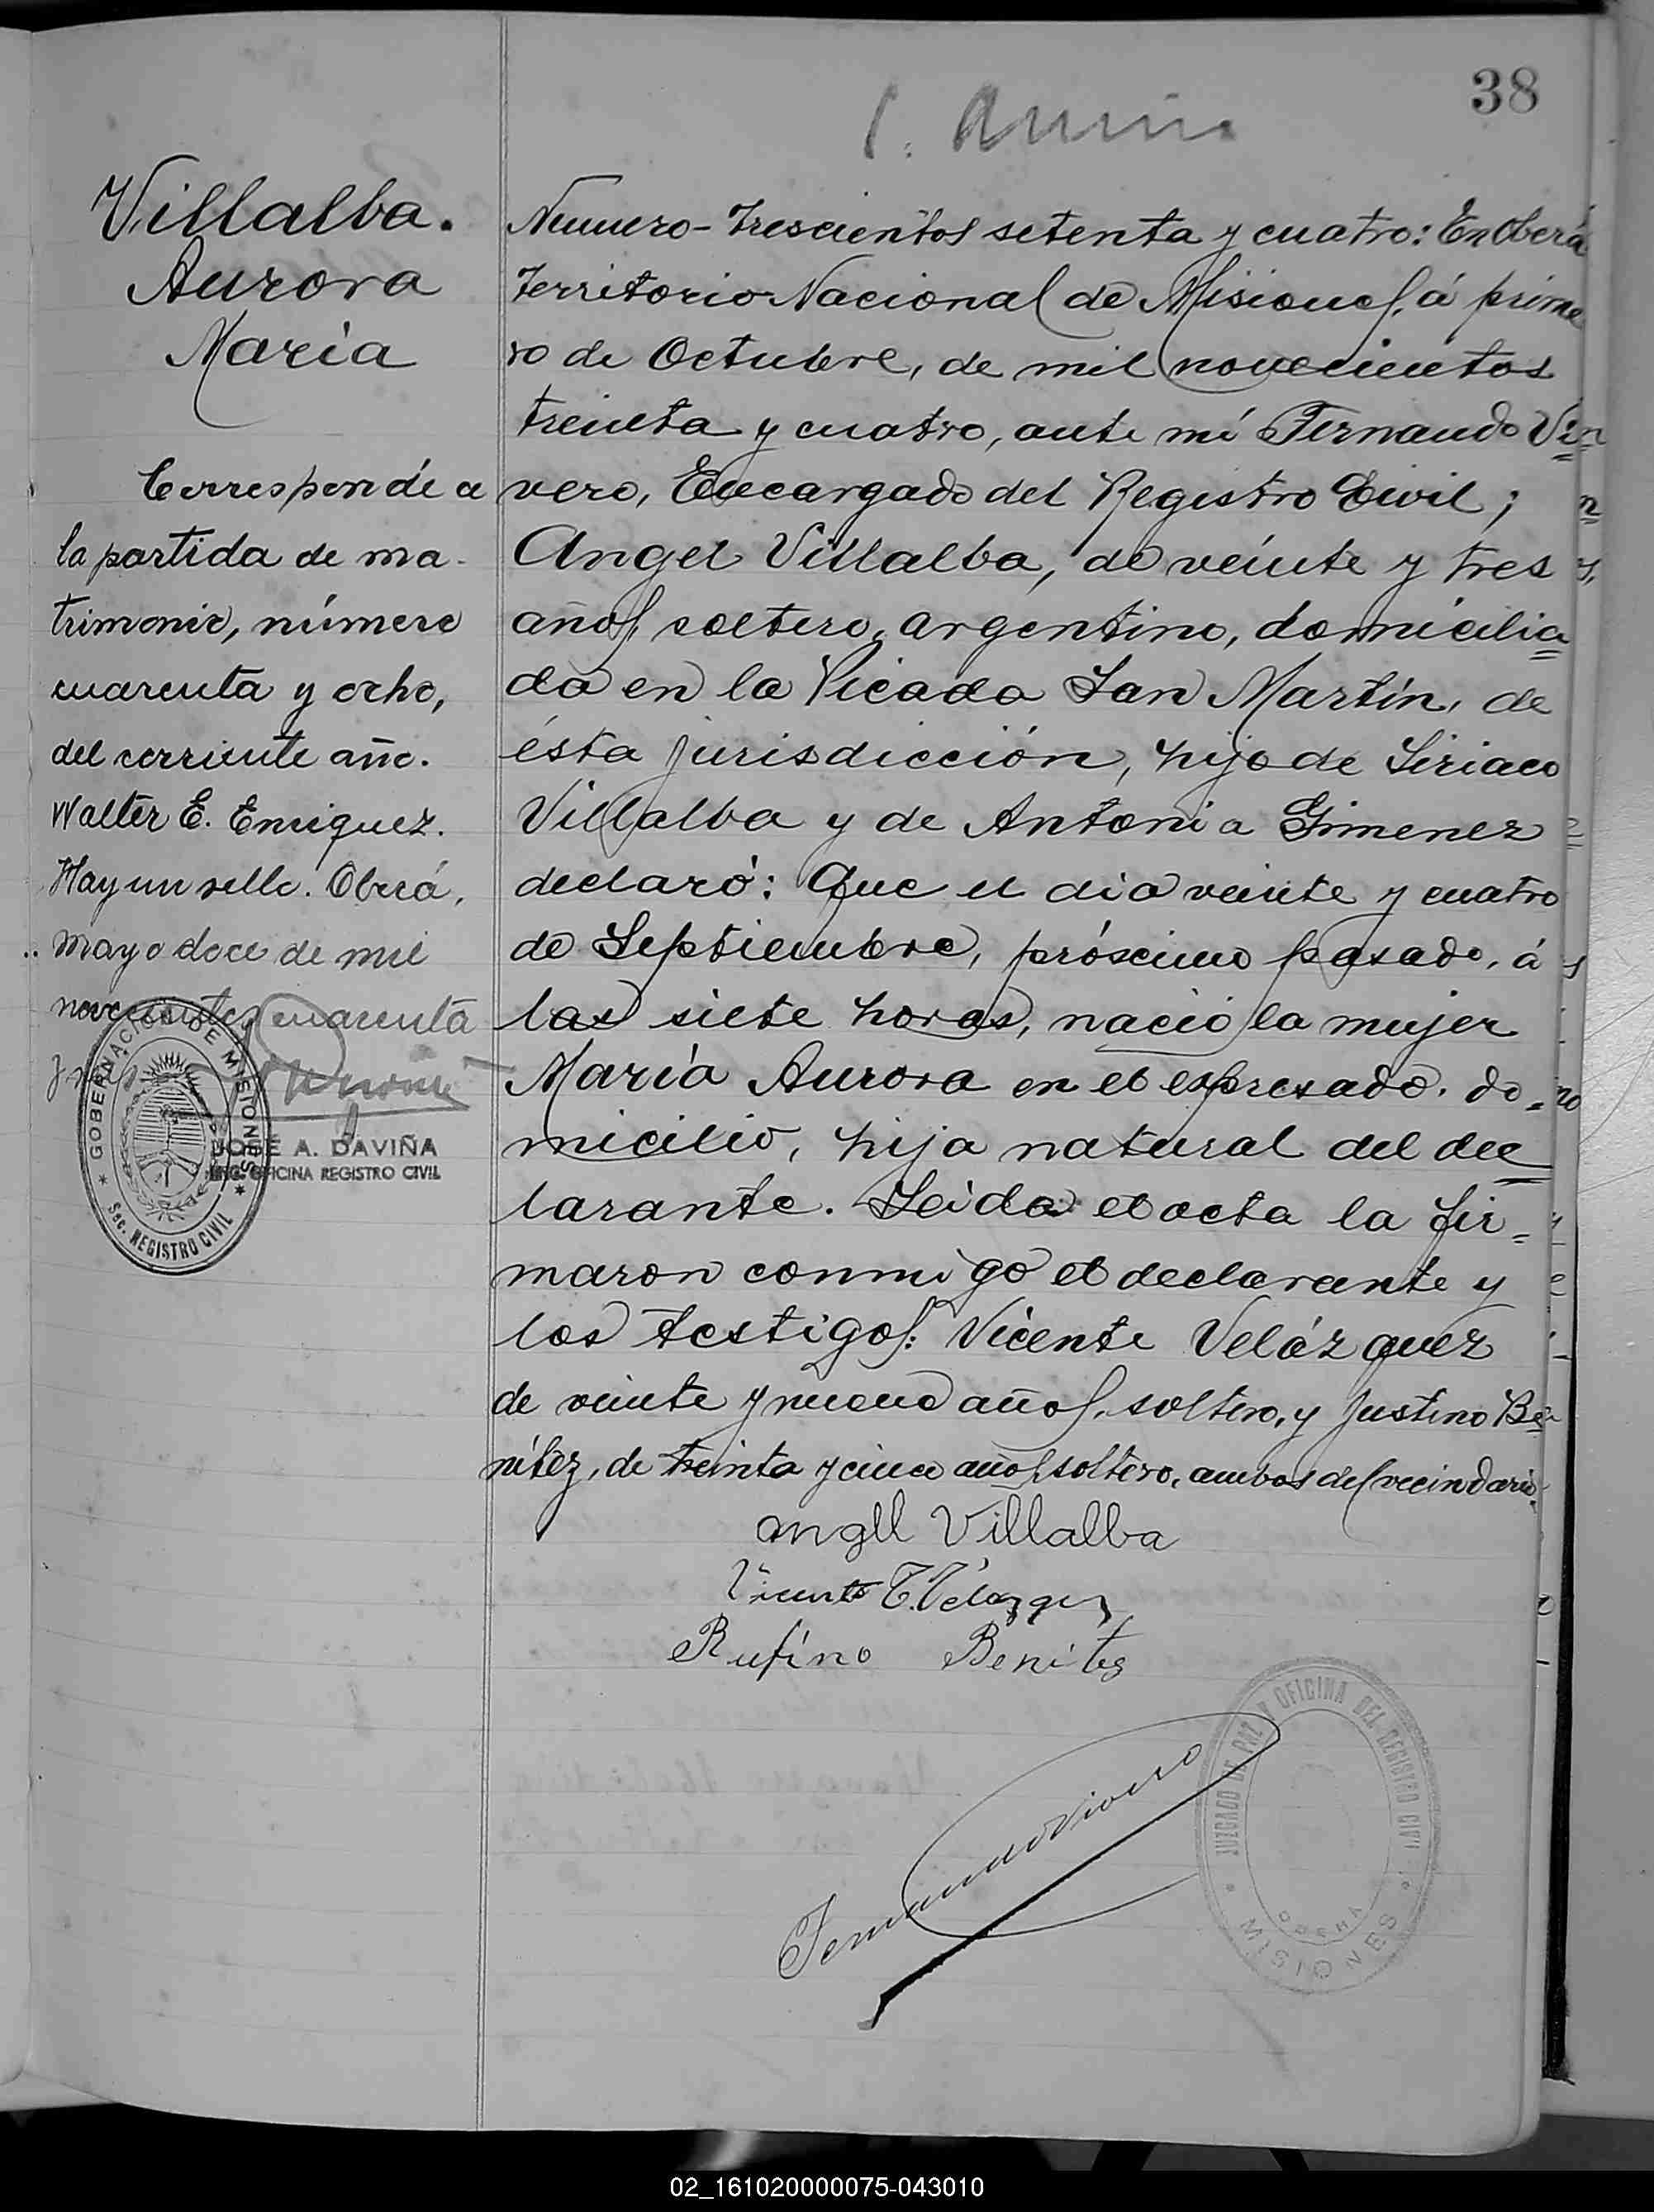 38
Villalba.
Aurora
María
Corresponde a
la partida de ma-
trimonio, número
cuarenta y ocho,
del corriente año.
Walter E. Enriquez.
Hay un sello. Oberá,
mayo doce de mil
novecientos cuarenta
GOBERNACION DE MISIONES
Sec. REGISTRO CIVIL
JOSÉ A. DAVIÑA
ENC. OFICINA REGISTRO CIVIL
Numero- Trescientos setenta y cuatro: En Oberá
Territorio Nacional de Misiones, á prime
ro de Octubre, de mil novecientos
treinta y cuatro, ante mí Fernando Vi=
vero, Encargado del Registro Civil;
Angel Villalba, de veinte y tres
años, soltero, argentino, domicilia=
do en la Picada San Martín, de
ésta jurisdicción, hijo de Siriaco
Villalba y de Antonia Gimenez
declaró: Que el día veinte y cuatro
de Septiembre, próximo pasado, á
las siete horas, nació la mujer
María Aurora en el espresado do=
micilio, hija natural del dec=
larante. Leida el acta la fir=
maron conmigo el declarante y
los testigos: Vicente Velázquez
de veinte y nueve años, soltero, y Justino Be=
nítez, de treinta y cinco años soltero, ambos del vecindario.
Angll Villalba
Vicente T. Velazquez
Rufino Benites
Fernando Vivero
JUZGADO DE PAZ Y OFICINA DEL REGISTRO CIVIL
OBERÁ
MISIONES
02_161020000075-043010